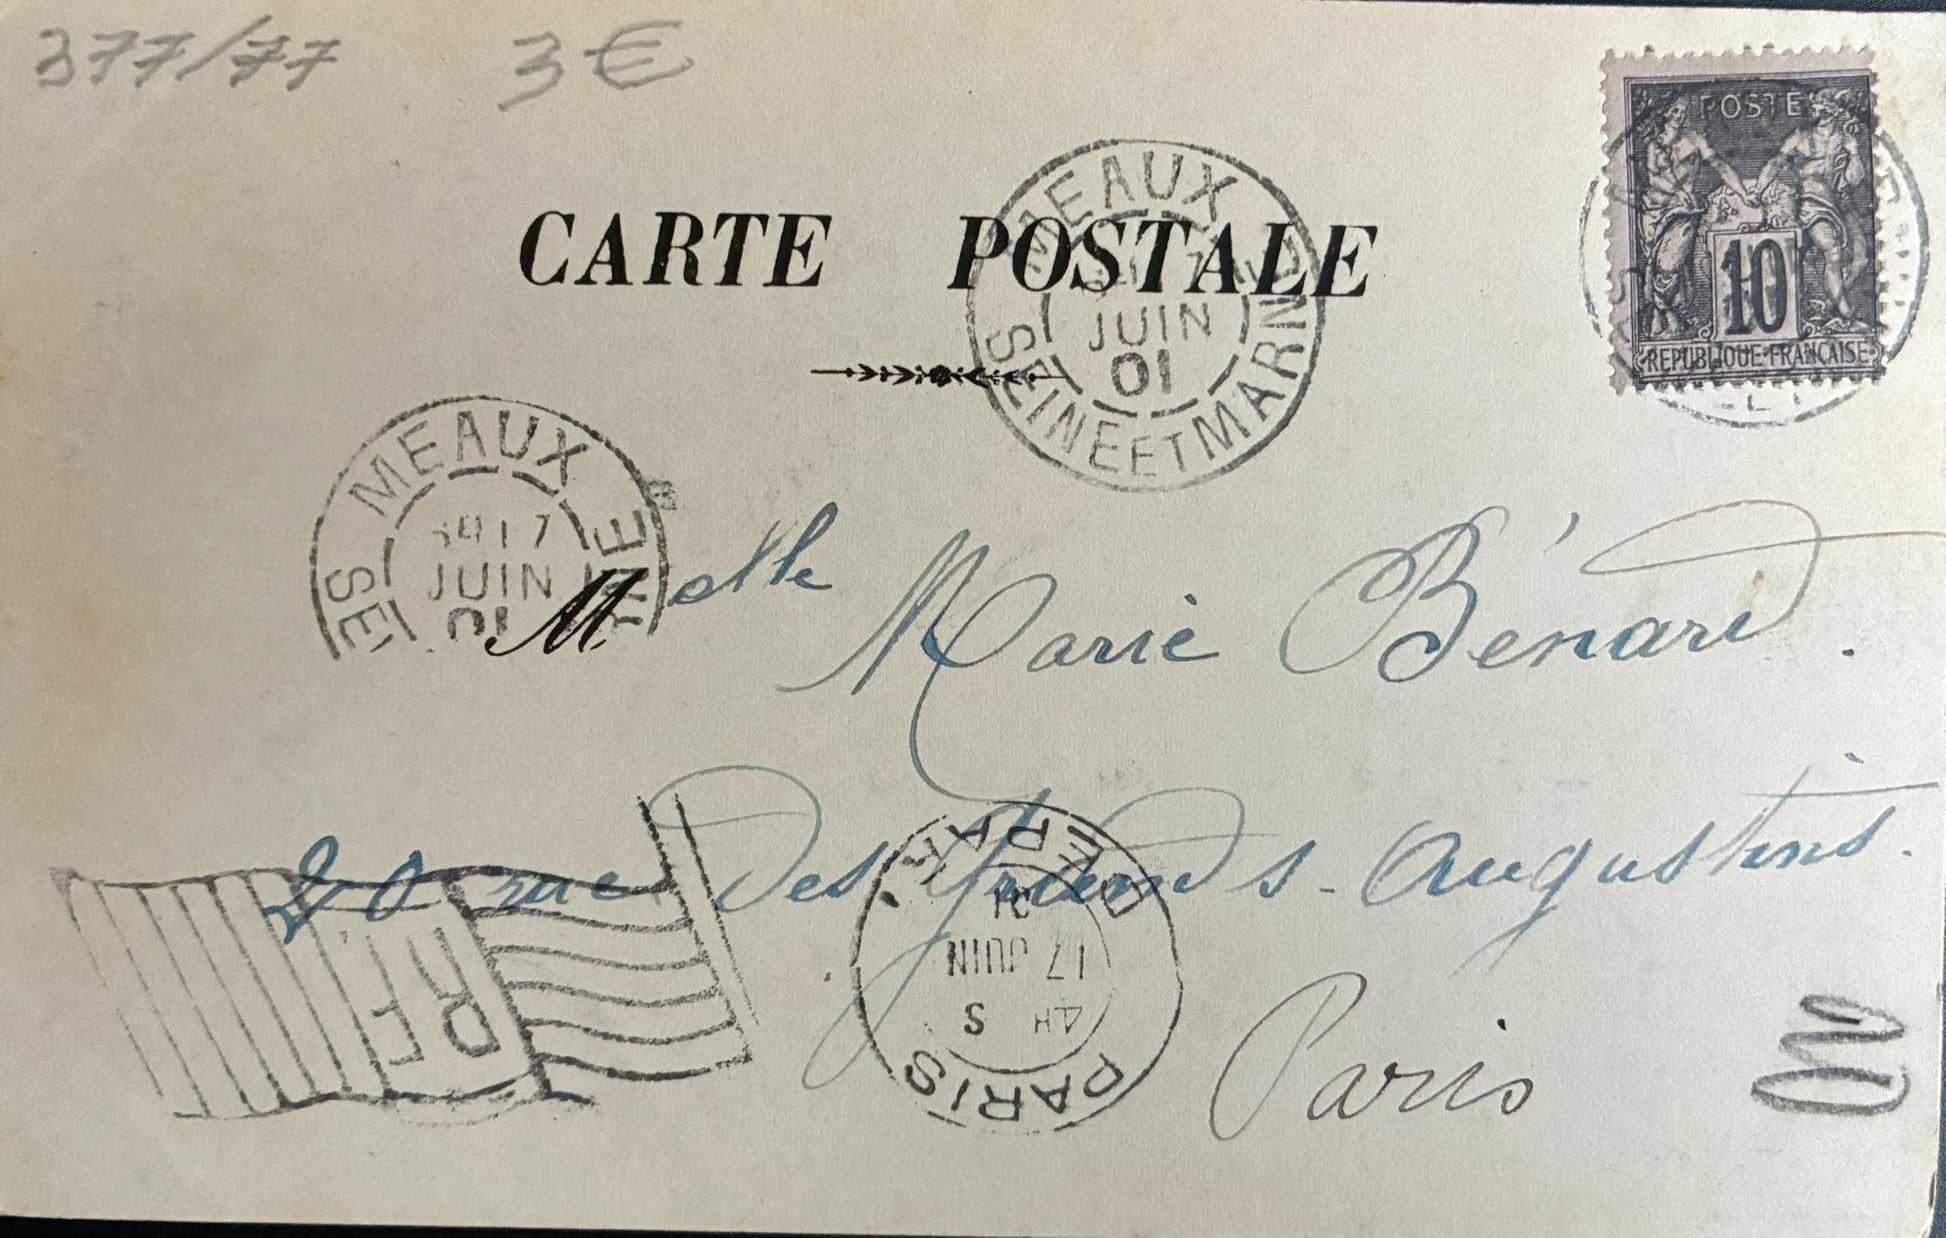 377/77 3€
POSTE
10
REPUBLIQUE FRANÇAISE
CARTE POSTALE
MEAUX
JUIN
01
SEINE ET MARNE
MEAUX
17
JUIN
01
Melle Marie Bénard.
20 rue des Grands-Augustins.
Paris
RF
PARIS
4H S
17 JUIN
01
DEPART